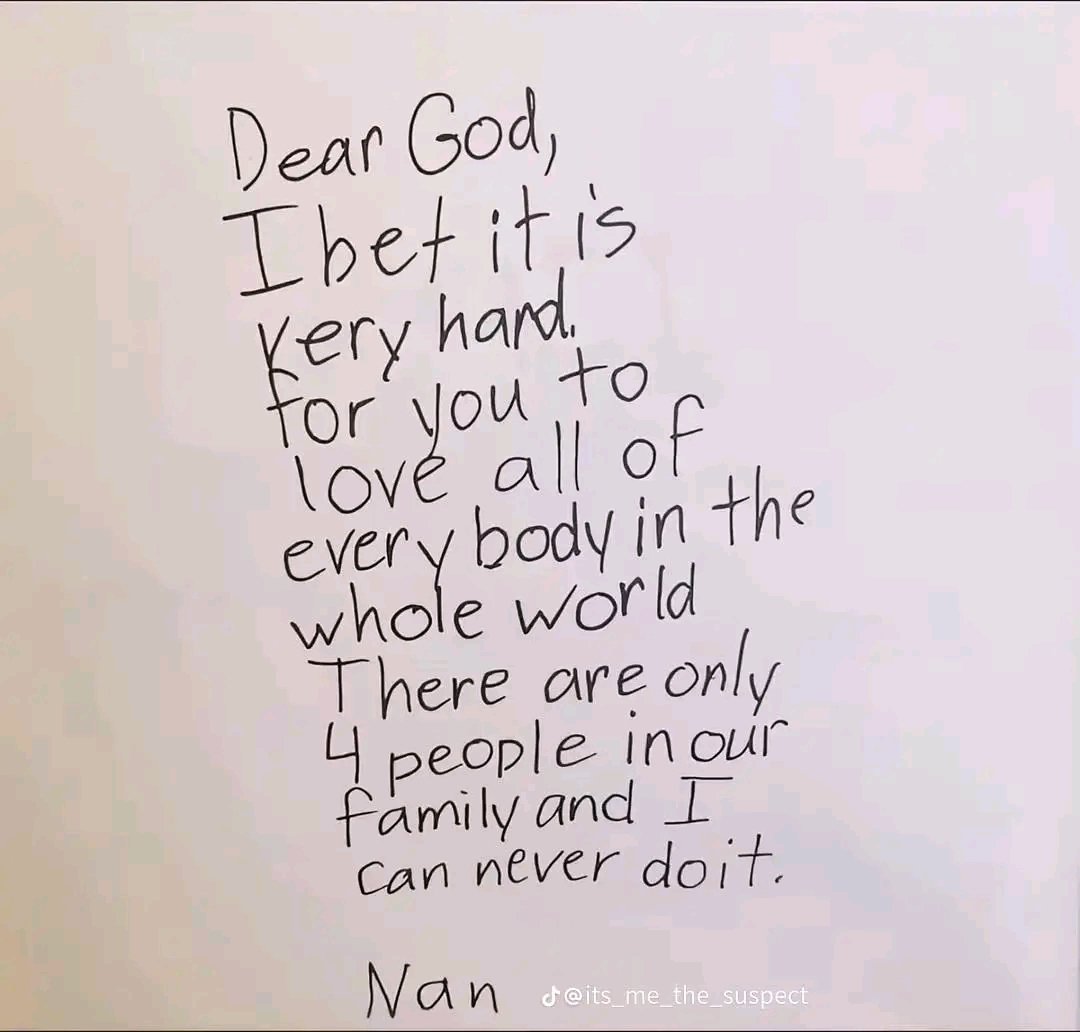 Dear God,
I bet it is
very hard.
for you to
love all of
every body in the
whole world
There are only
4 people in our
family and I
can never do it.
Nan
@its_me_the_suspect